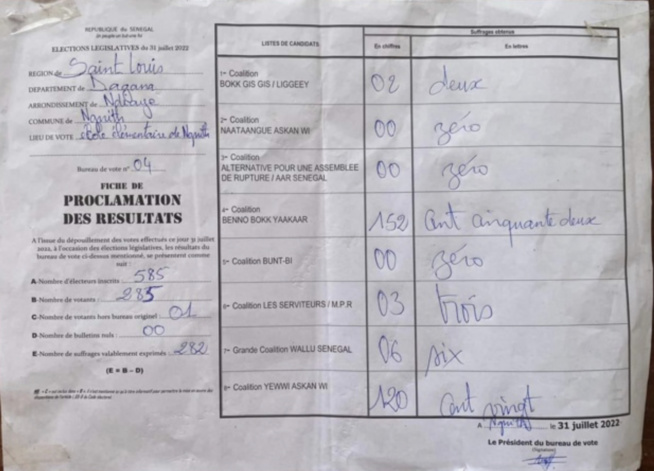 REPUBLIQUE du SENEGAL
ELECTIONS LEGISLATIVES du 31 juillet 2022
REGION de Saint Louis
DEPARTEMENT de Dagana
ARRONDISSEMENT de Ndiaye
COMMUNE de Ngnith
LIEU DE VOTE école élémentaire de Ngnith
Bureau de vote n° 04
FICHE DE
PROCLAMATION
DES RESULTATS
A l'issue du dépouillement des votes effectués ce jour 31 juillet
2022, à l'occasion des élections législatives, les résultats du
bureau de vote ci-dessus mentionné, se présentent comme
suit :
A-Nombre d'électeurs inscrits 585
B-Nombre de votants 285
C-Nombre de votants hors bureau originel 01
D-Nombre de bulletins nuls 00
E-Nombre de suffrages valablement exprimés 282
(E = B – D)
Suffrages obtenus
LISTES DE CANDIDATS En chiffres En lettres
1ère Coalition
BOKK GIS GIS / LIGGEEY 02 deux
2ème Coalition
NAATAANGUE ASKAN WI 00 zéro
3ème Coalition
ALTERNATIVE POUR UNE ASSEMBLEE
DE RUPTURE / AAR SENEGAL 00 zéro
4ème Coalition
BENNO BOKK YAAKAAR 152 cent cinquante deux
5ème Coalition BUNT-BI 00 zéro
6ème Coalition LES SERVITEURS / M.P.R 03 trois
7ème Grande Coalition WALLU SENEGAL 06 six
8ème Coalition YEWWI ASKAN WI 120 cent vingt
A Ngnith le 31 juillet 2022
Le Président du bureau de vote
(Signature)